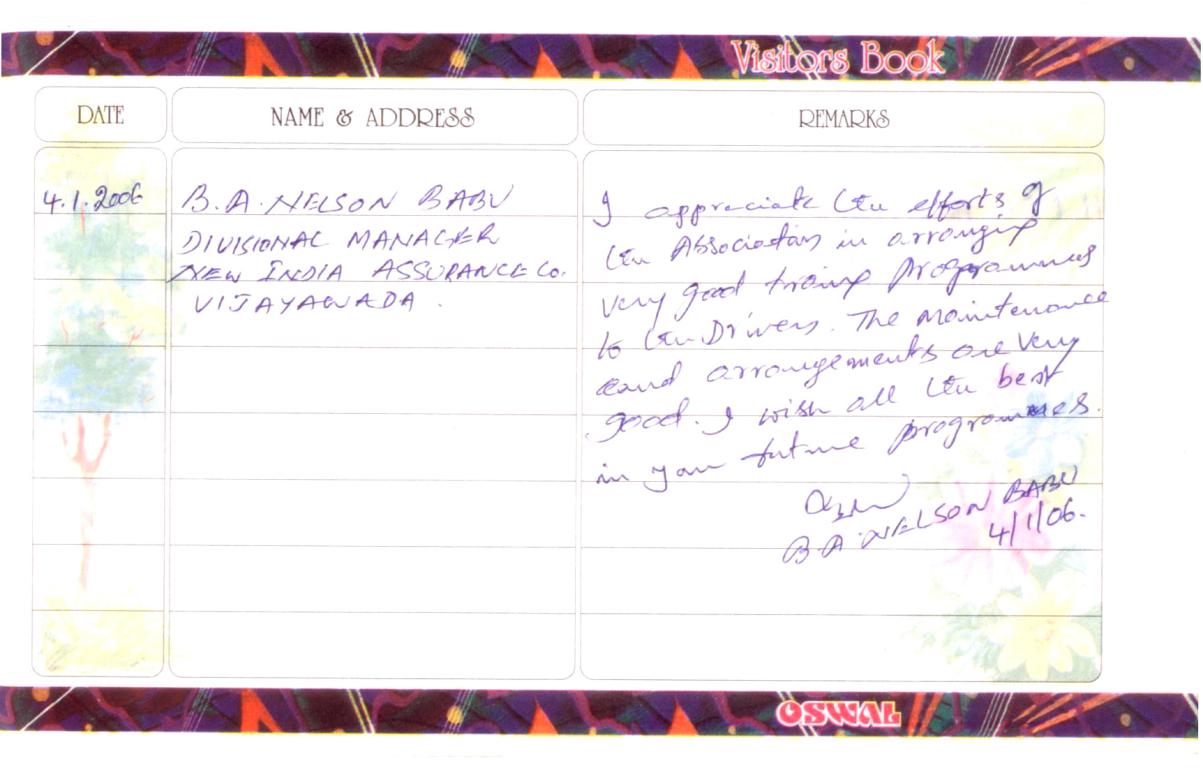 Visitors Book
DATE
NAME & ADDRESS
REMARKS
4.1.2006
B.A. NELSON BABU
DIVISIONAL MANAGER
NEW INDIA ASSURANCE Co.
VIJAYAWADA.
I appreciate the efforts of
the Association in arranging
very good training programmes
to the Drivers. The maintenance
and arrangements are very
good. I wish all the best
in your future programmes.
B.A. NELSON BABU
4/1/06.
OSWAL